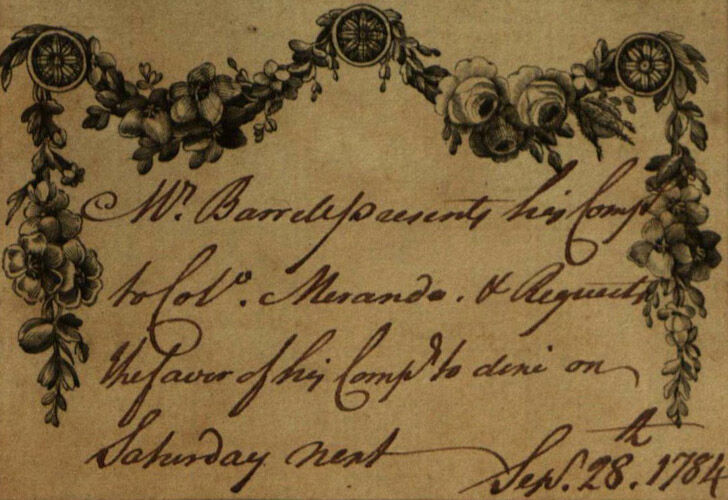 Mr. Barrell presents his Compts
to Colo. Meranda. & Requests
the favor of his Compy to dine on
Saturday next
Sepr. 28.th 1784